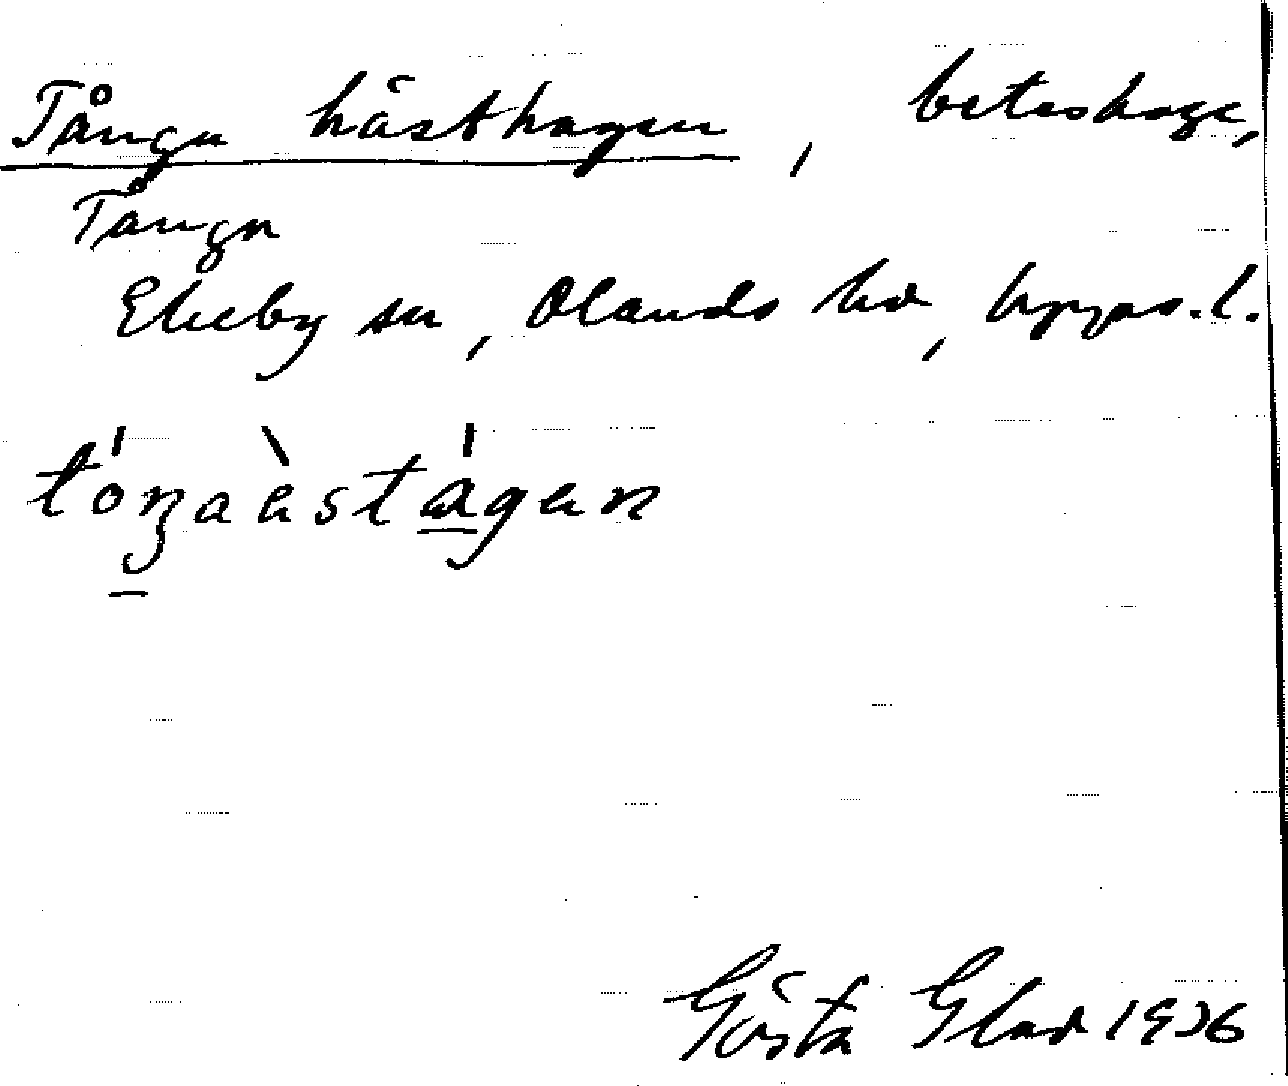 Tånga hästhagen, beteshage,
Tånga
Ekeby sn, Olands hd, Upps. l.
tóŋaàstágen
Gösta Glad 1936